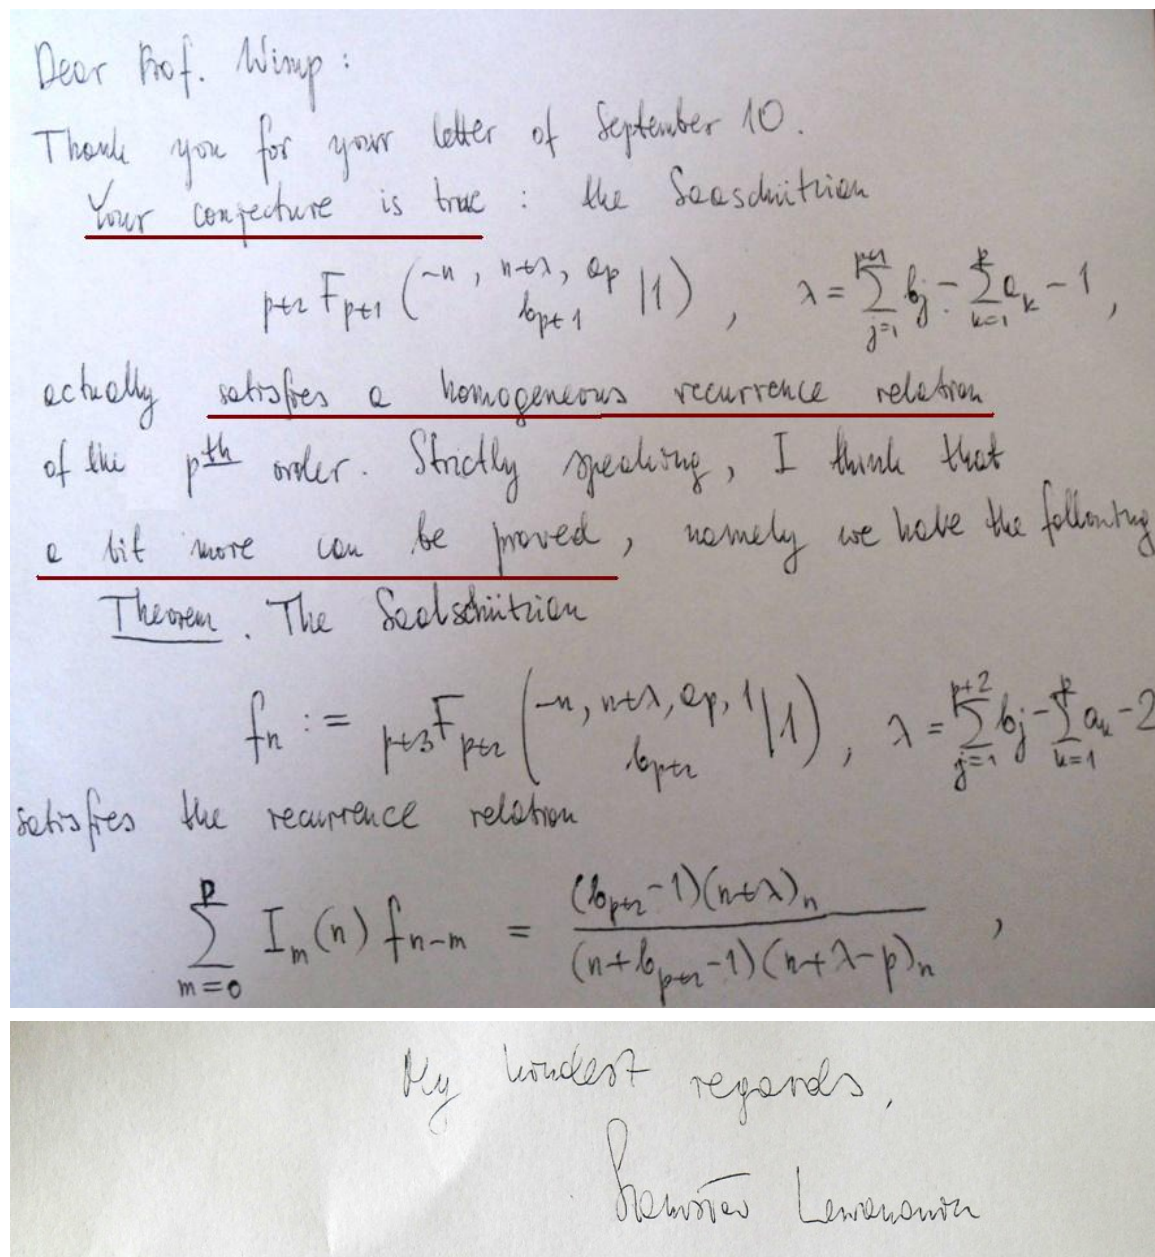 Dear Prof. Wimp:
Thank you for your letter of September 10.
Your conjecture is true : the Saaschützian
p+2 F p+1 ( -n , n+λ, a_p ; b_{p+1} | 1 ) , λ = Σ_{j=1}^{p+1} b_j - Σ_{k=1}^{p} a_k - 1 ,
actually satisfies a homogeneous recurrence relation
of the pth order. Strictly speaking, I think that
a bit more can be proved, namely we have the following
Theorem. The Saalschützian
f_n := p+3 F p+2 ( -n, n+λ, a_p, 1 ; b_{p+2} | 1 ) , λ = Σ_{j=1}^{p+2} b_j - Σ_{k=1}^{p} a_k - 2
satisfies the recurrence relation
Σ_{m=0}^{p} I_m(n) f_{n-m} = (b_{p+2} - 1)(n+λ)_n / (n + b_{p+2} - 1)(n+λ-p)_n ,
My kindest regards,
Stanisław Lewanowicz